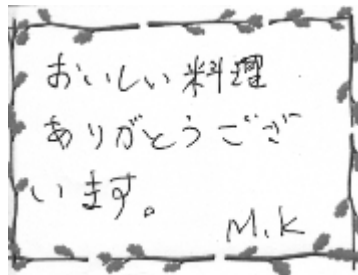 おいしい料理
ありがとうござ
います。
M.K